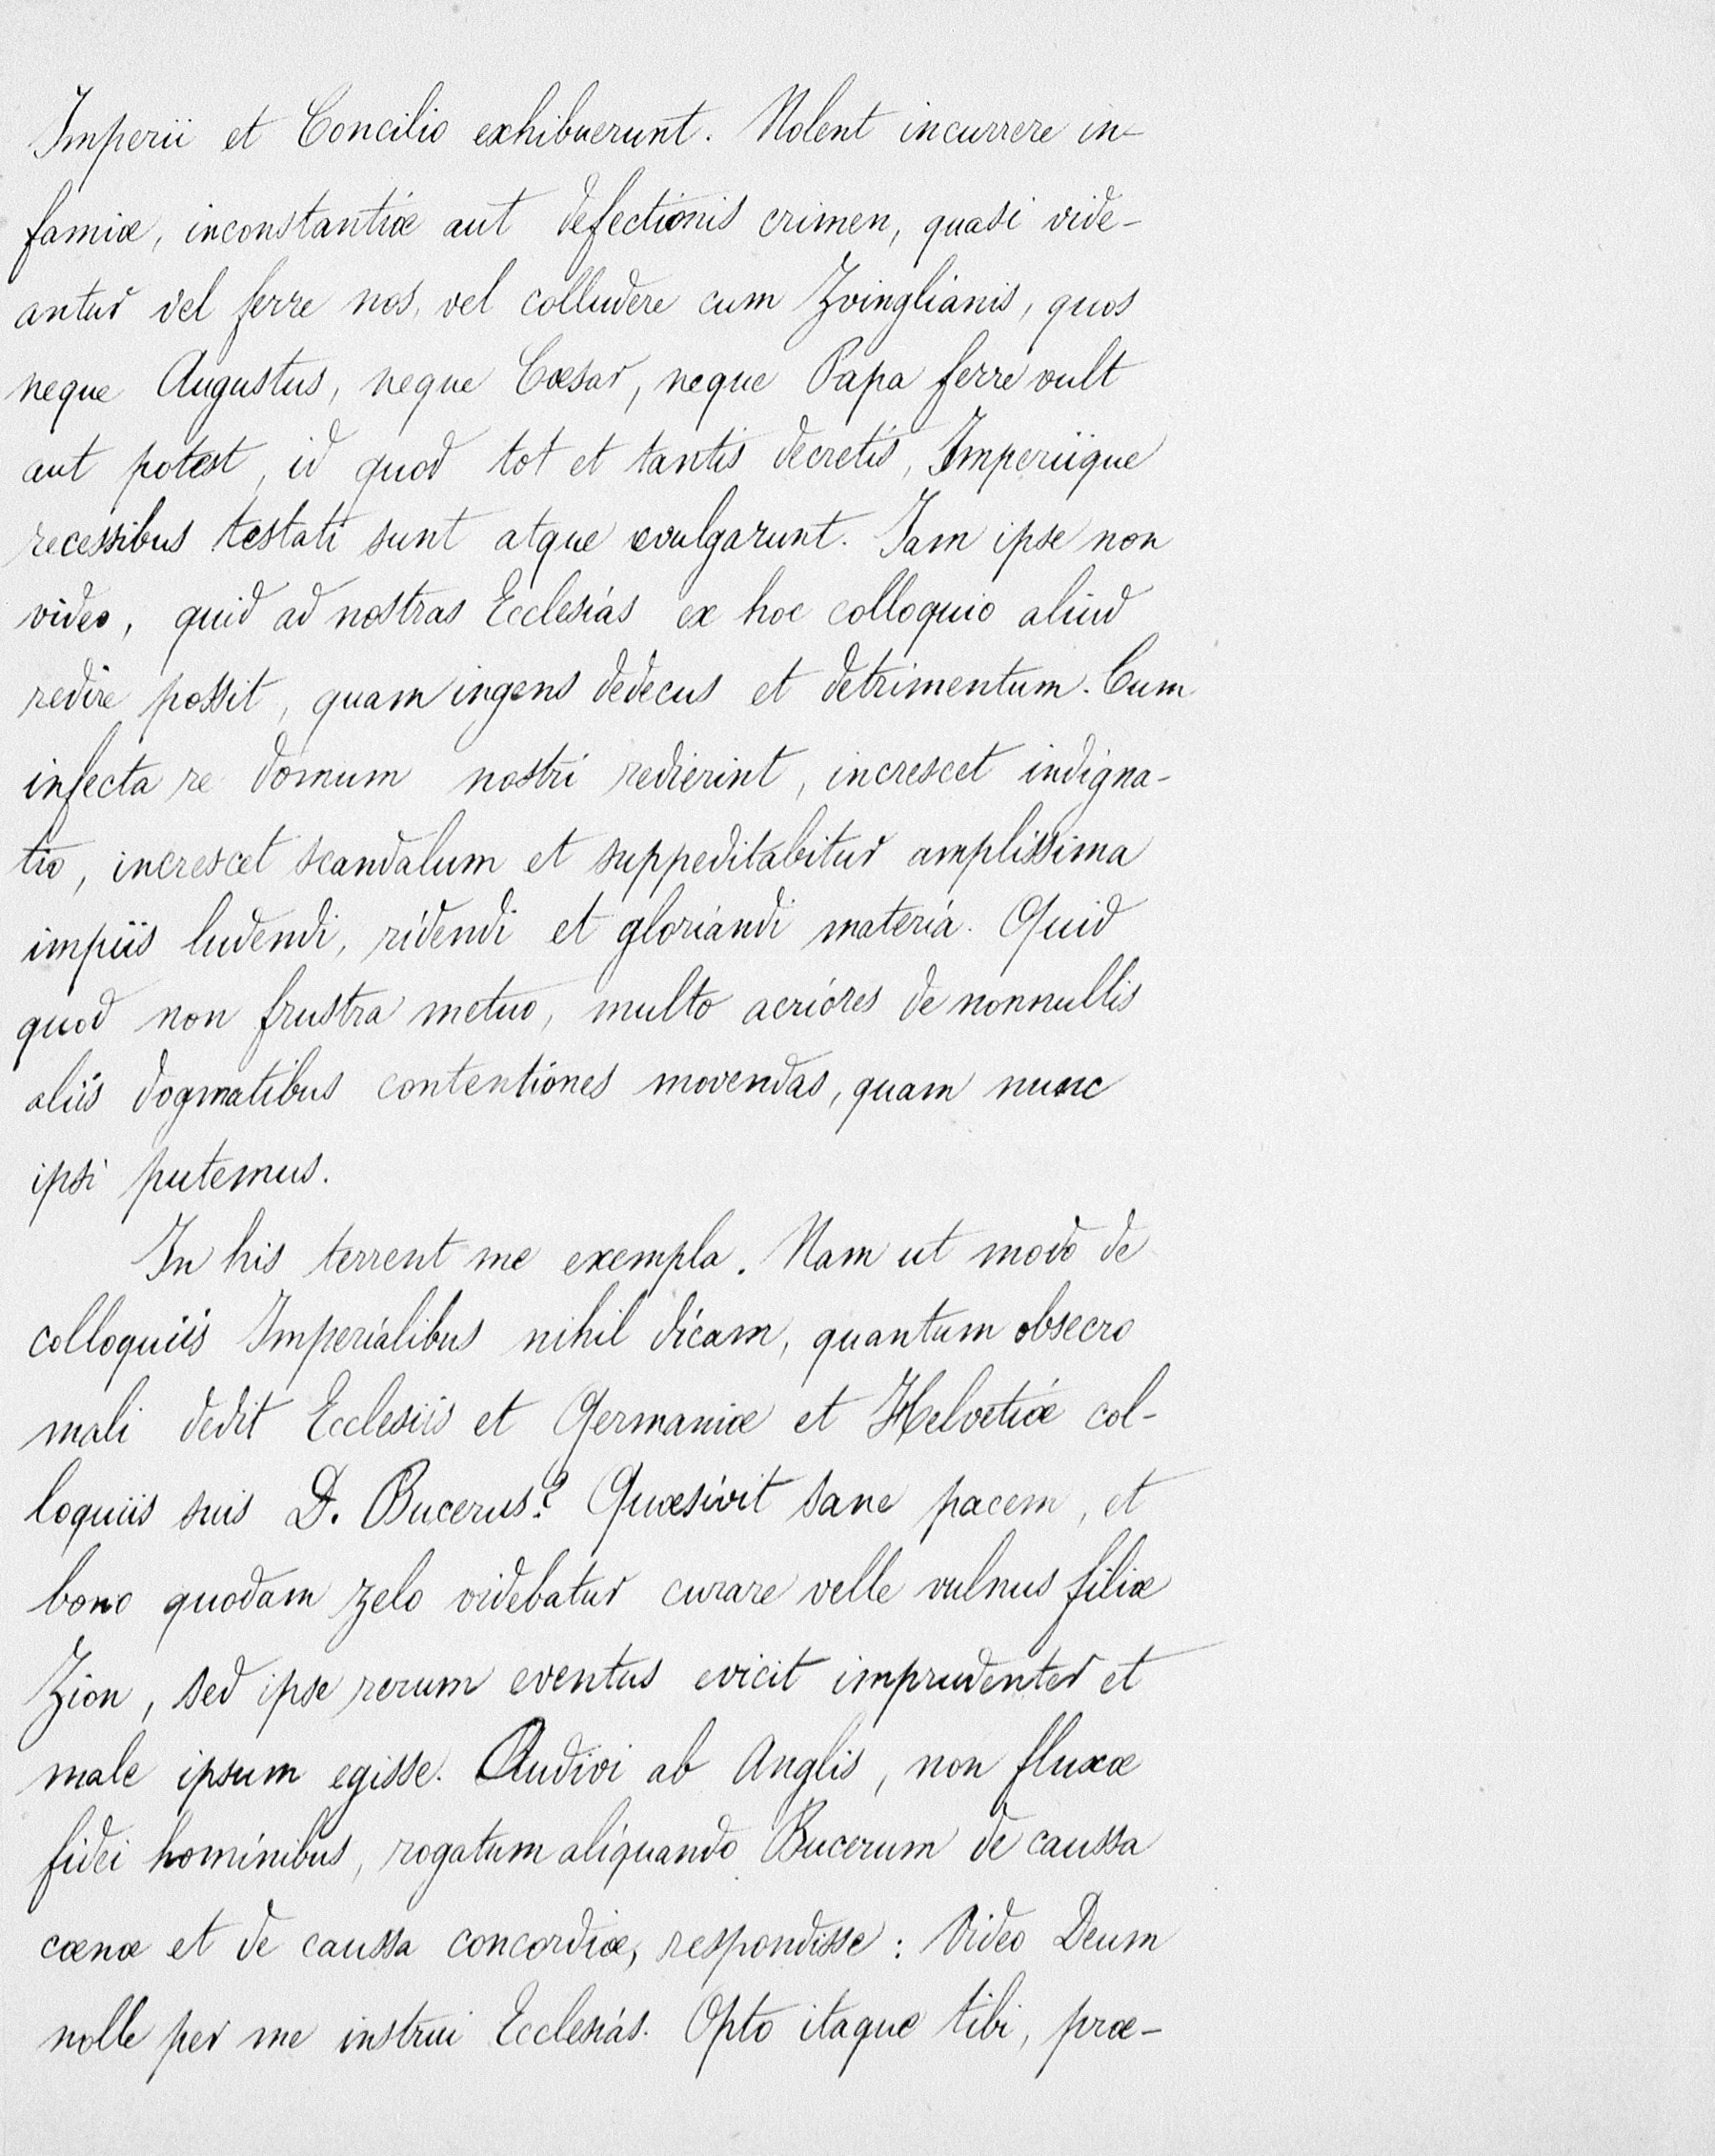 Imperii et Concilio exhibuerunt. Nolent incurrere in-
famiæ, inconstantiæ aut defectionis crimen, quasi vide-
antur vel ferre nos, vel colludere cum Zvinglianis, quos
neque Augustus, neque Cæsar, neque Papa ferre vult
aut potest, id quod tot et tantis decretis, Imperiique
recessibus testati sunt atque evulgarunt. Jam ipse non
video, quid ad nostras Ecclesias ex hoc colloquio aliud
redire possit, quam ingens dedecus et detrimentum. Cum
infecta re domum nostri redierint, increscet indigna-
tio, increscet scandalum et suppeditabitur amplissima
impiis ludendi, ridendi et gloriandi materia. Quid
quod non frustra metuo, multo acriores de nonnullis
aliis dogmatibus contentiones movendas, quam nunc
ipsi putemus.
In his terrent me exempla. Nam ut modo de
colloquiis Imperialibus nihil dicam, quantum obsecro
mali dedit Ecclesiis et Germaniæ et Helvetiæ col-
loquiis suis D. Bucerus? Quæsivit sane pacem, et
bono quodam zelo videbatur curare velle vulnus filiæ
Zion, sed ipse rerum eventus evicit imprudenter et
male ipsum egisse. Audivi ab Anglis, non fluxæ
fidei hominibus, rogatum aliquando Bucerum de caussa
cœnæ et de caussa concordiæ, respondisse: Video Deum
nolle per me instrui Ecclesias. Opto itaque tibi, præ-